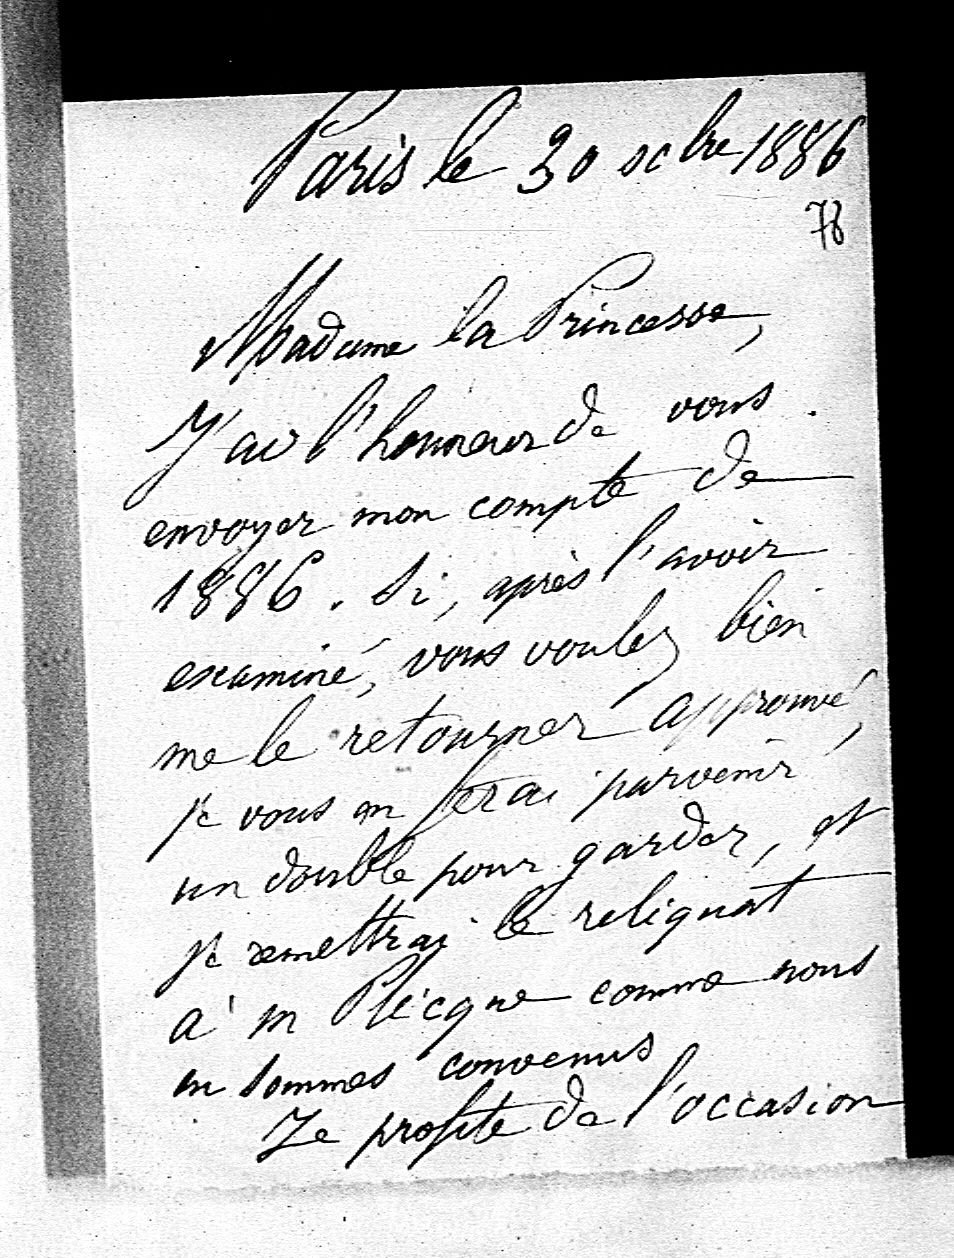 Paris le 30 octbre 1886
78
Madame la Princesse,
J'ai l'honneur de vous
envoyer mon compte de
1886. Si, après l'avoir
examiné, vous voulez bien
me le retourner approuvé,
je vous en ferai parvenir
un double pour garder, et
je remettrai le reliquat
à m Plécque comme nous
en sommes convenus
Je profite de l'occasion